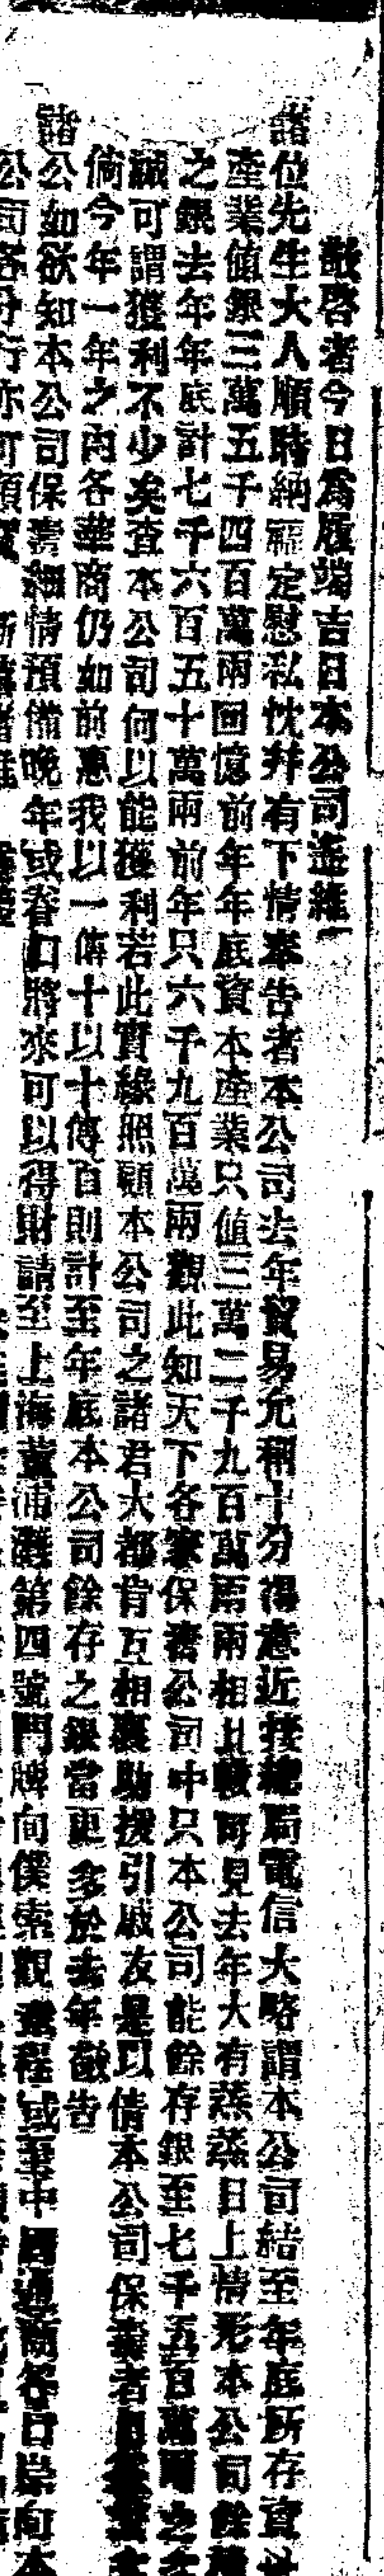 敬啓者今日爲履端吉日本公司遙維
諸位先生大人順時納福定慰私忱幷有下情奉告者本公司去年貿易允稱十分得意近接總局電信大略謂本公司結至年底所存資
產業値銀三萬五千四百萬兩回憶前年年底資本產業只値三萬二千九百萬兩兩相比較可見去年大有蒸蒸日上情形本公司餘
之銀去年年底計七千六百五十萬兩前年只六千九百萬兩觀此知天下各家保壽公司中只本公司能餘存銀至七千五百萬兩之
誠可謂獲利不少矣查本公司何以能獲利若此實緣照顧本公司之諸君大都肯互相襄助援引戚友是以倩本公司保壽者
倘今年一年之內各華商仍如前惠我以一傳十以十傳百則計至年底本公司餘存之銀當更多於去年敬告
諸公如欲知本公司保壽細情預備晚年或眷口將來可以得財請至上海黃浦灘第四號門牌向僕索觀章程或至中國通商各口岸向本
公司各分行亦可